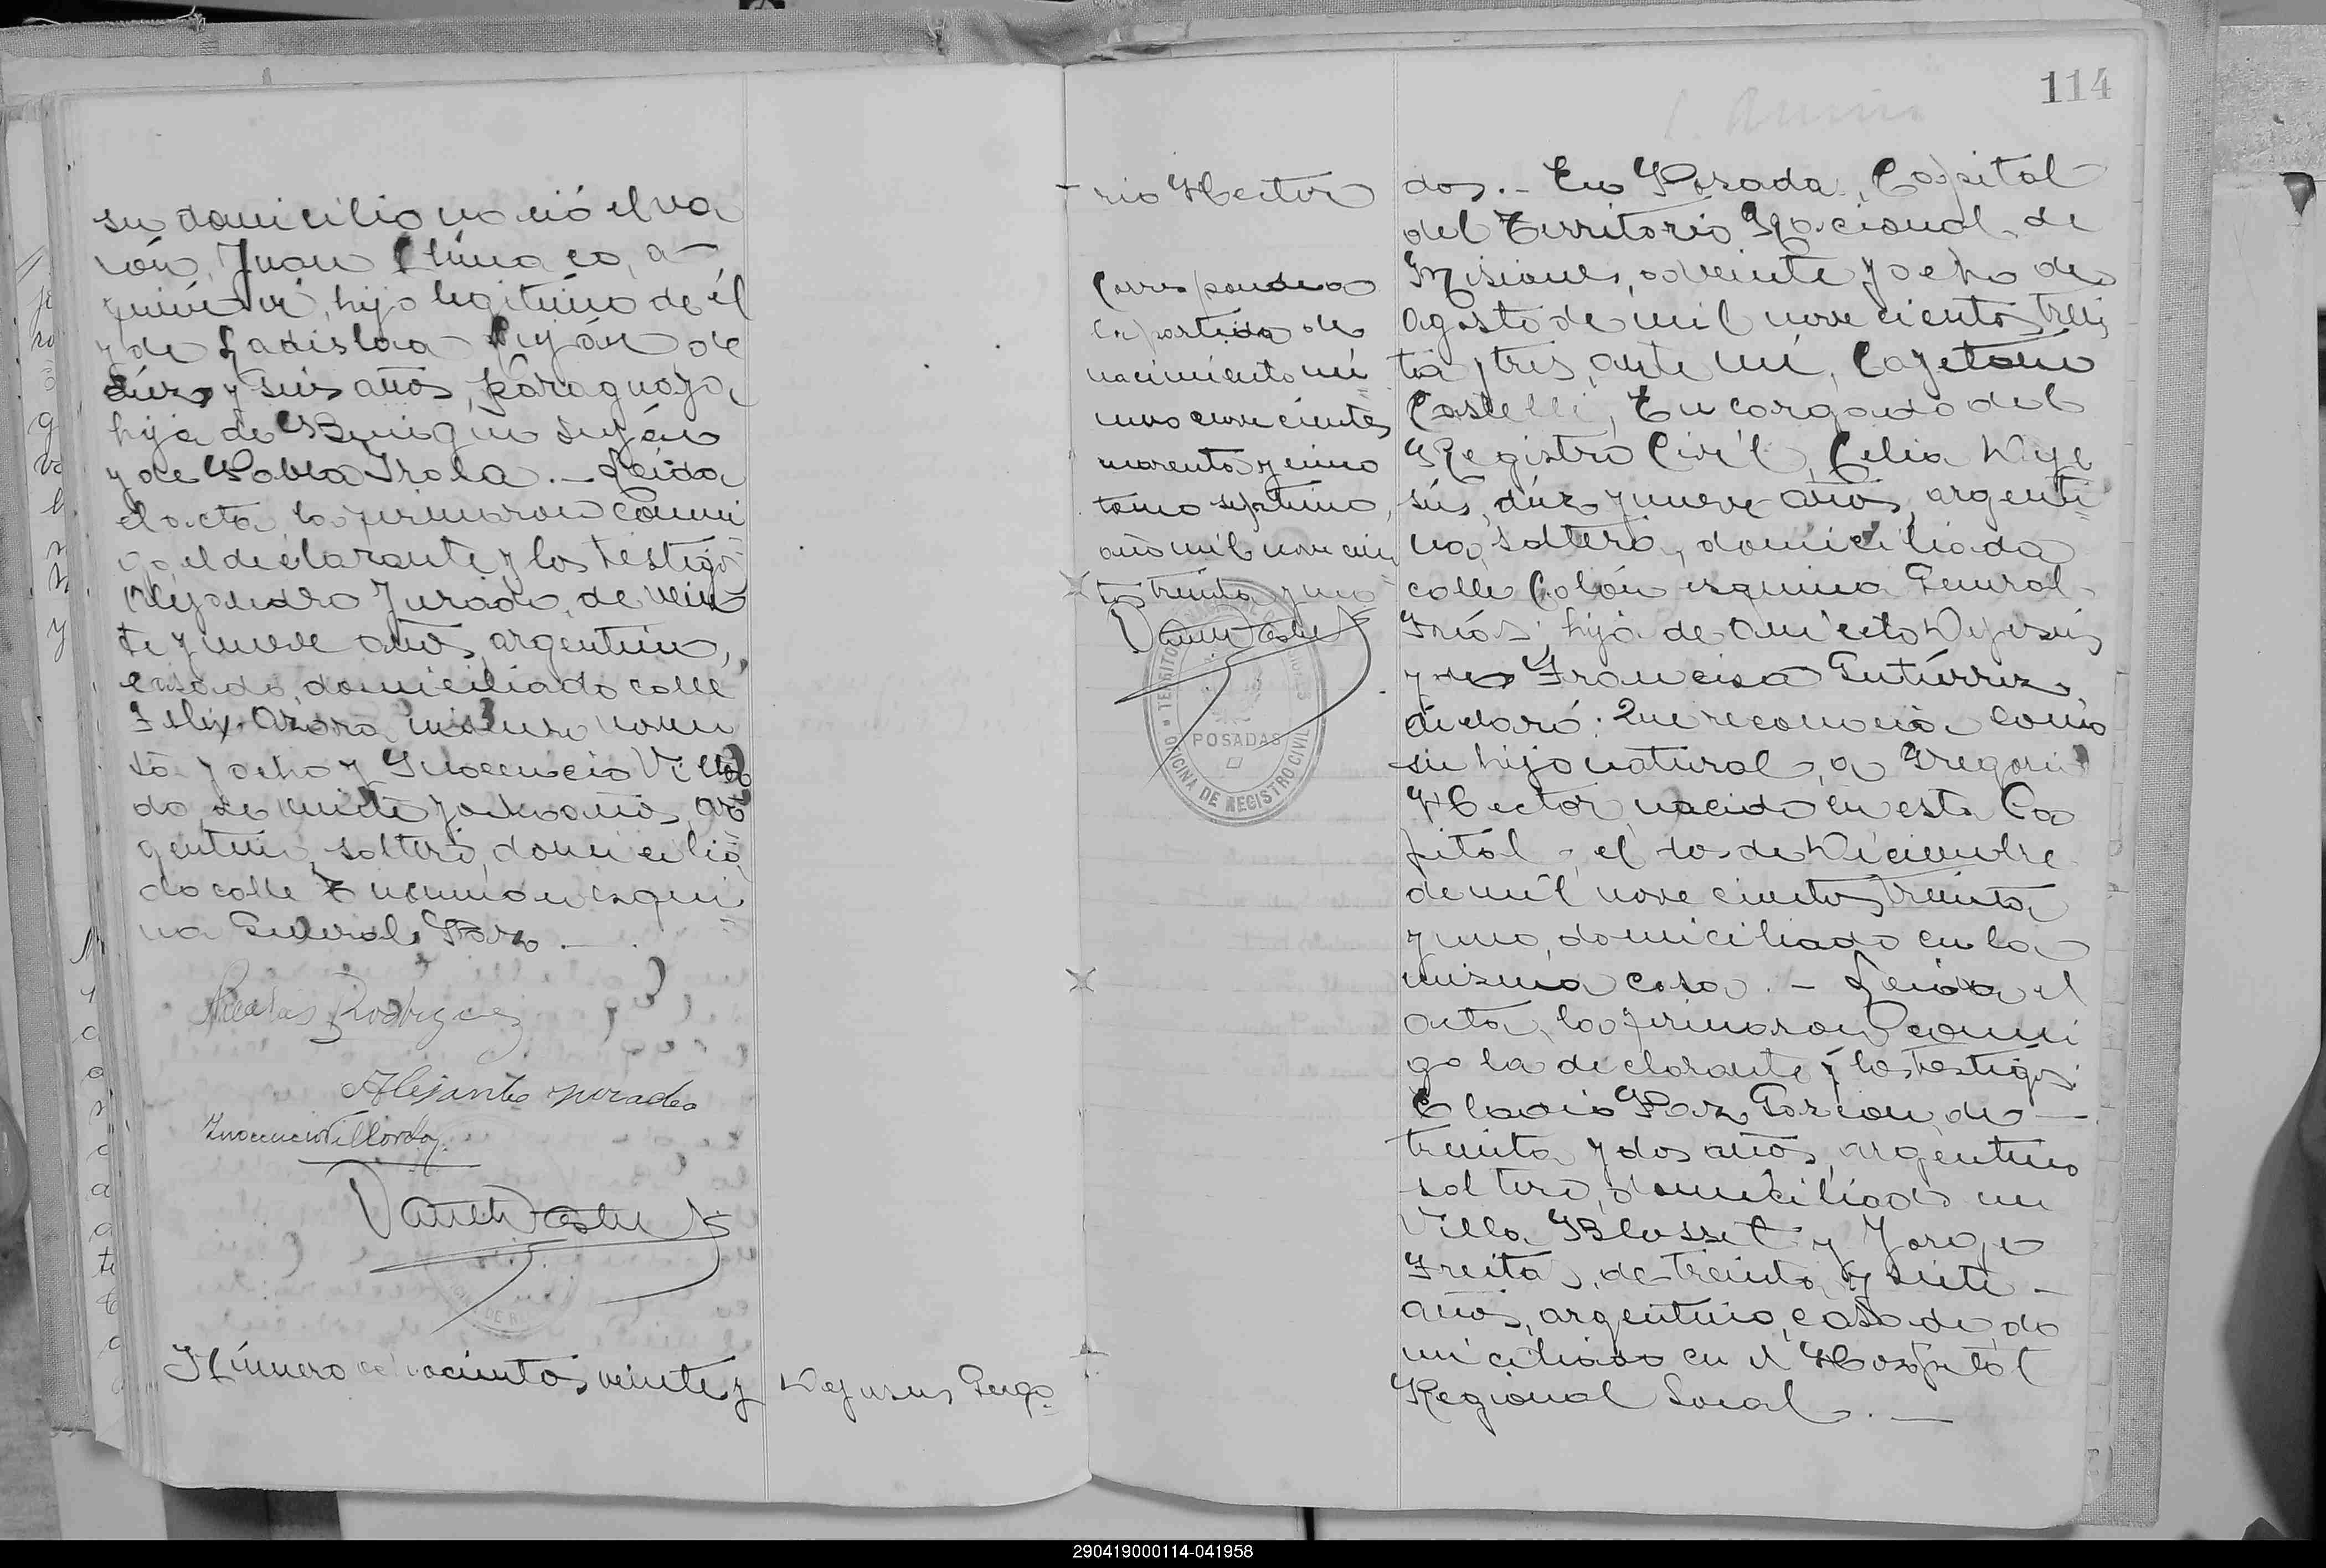 su domicilio nació el va
rón, Juan Clímaco, a
quien vi, hijo legítimo de él
y de Ladislaa Luján de
diez y seis años, paraguaya
hija de Benigno Luján
y de Pabla Irala. — Leída
el acta, la firmaron conmi
go, el declarante y los testigos
Alejandro Jurado, de vein
te y nueve años, argentino,
casado, domiciliado calle
Felix Azara número noven
ta y ocho y Inocencio Villor
do, de veinte y ocho años, ar
gentino, soltero, domicilia
do calle Tucumán esqui
na General Paz. —
Rodriguez
Alejandro Jurado
Inocencio Villordo
Número doscientos veinte y
Dejesus, Grego
114
rio Hector
Corresponde a
la partida de
nacimiento nú
mero novecientos
cuarenta y cinco
tomo septimo,
año mil novecien
tos treinta y uno
POSADAS
OFICINA DE REGISTRO CIVIL
dos. — En Posadas, Capital
del Territorio Nacional de
Misiones, a veinte y ocho de
Agosto de mil novecientos trein
ta y tres, ante mí, Cayetano
Castelli, Encargado del
Registro Civil, Celia Deje
sús, diez y nueve años, argenti
na, soltera, domiciliada
calle Colón esquina General
Frías, hija de Aniceto Dejesús
y de Francisca Gutiérrez,
declaró: Que reconocía como
su hijo natural, a Gregorio
Hector, nacido en esta Ca
pital, el dos de Diciembre
de mil novecientos treinta
y uno, domiciliado en la
misma casa. — Leída el
acta, la firmaron conmi
go la declarante y los testigos
Eladio Paz Garzon, de —
treinta y dos años, argentino
soltero, domiciliado en
Villa Blosset y Jorge
Freitas, de treinta y siete —
años, argentino, casado, do
miciliado en el Hospital
Regional local. —
290419000114-041958